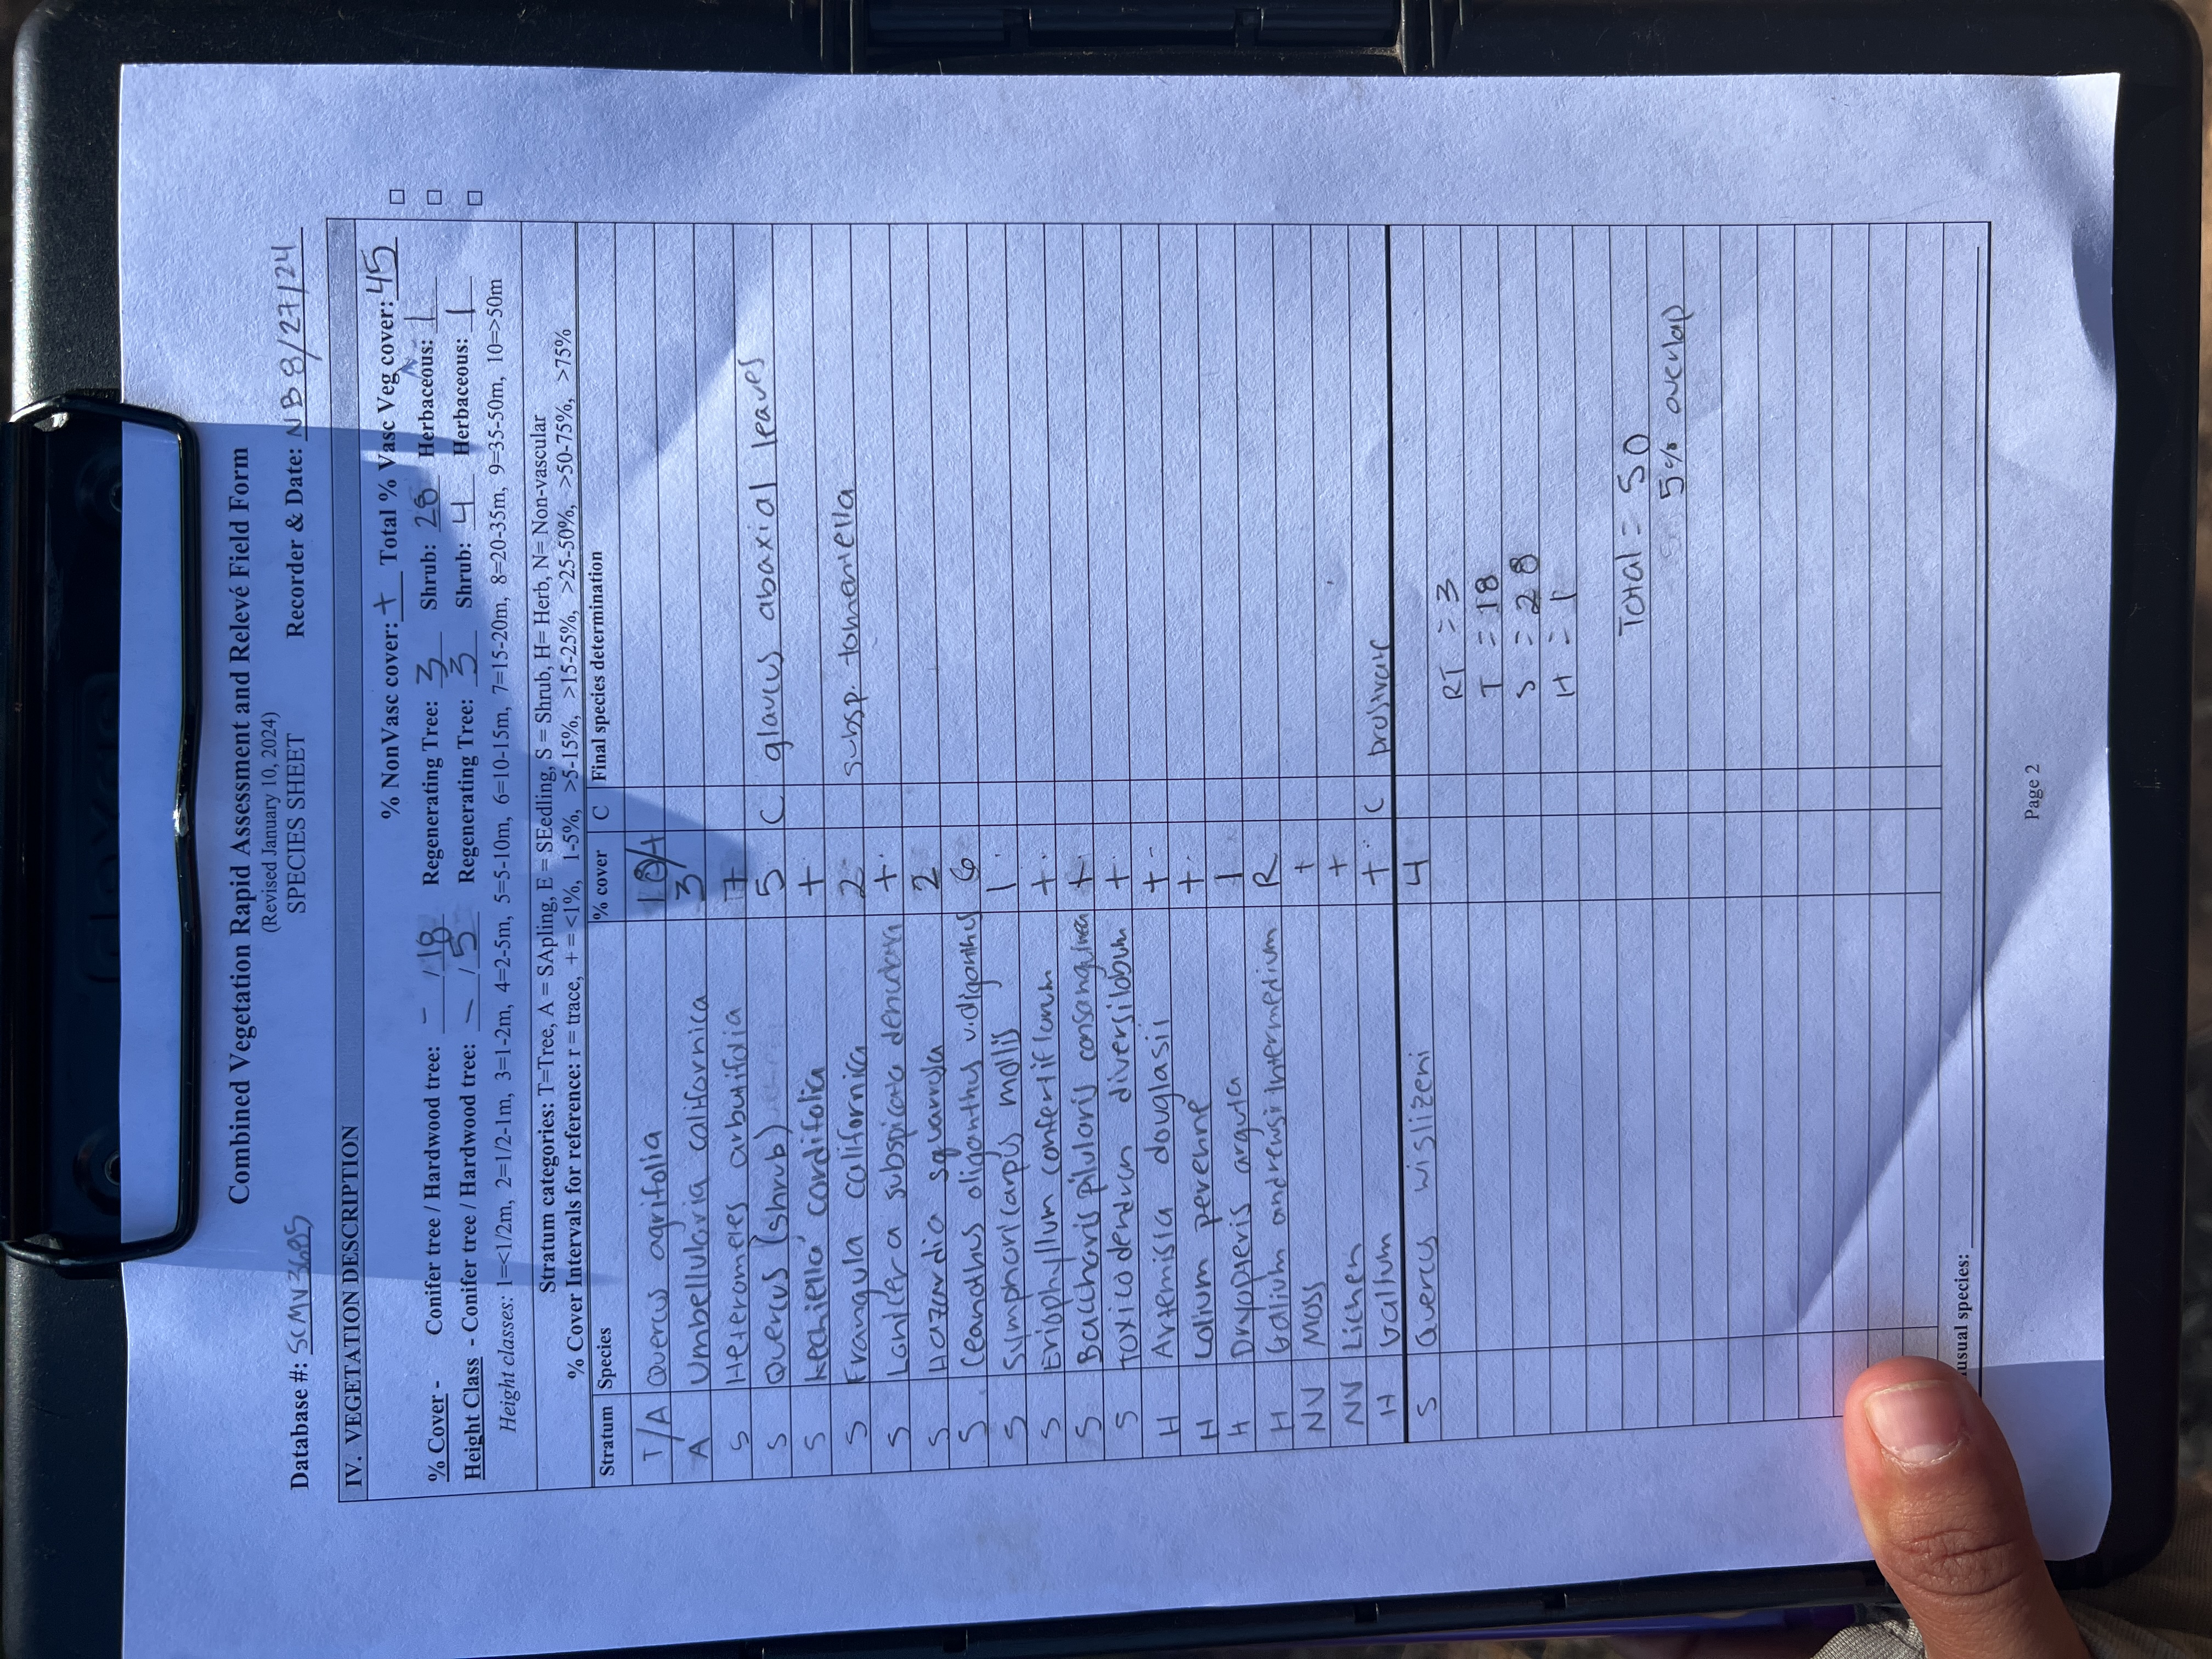 Combined Vegetation Rapid Assessment and Relevé Field Form
(Revised January 10, 2024)
SPECIES SHEET
Database #: SCMV3695 Recorder & Date: NB 8/27/24
IV. VEGETATION DESCRIPTION
% NonVasc cover: + Total % Vasc Veg cover: 45 □
% Cover - Conifer tree / Hardwood tree: - / 18 Regenerating Tree: 3 Shrub: 28 Herbaceous: 1 □
Height Class - Conifer tree / Hardwood tree: - / 5 Regenerating Tree: 3 Shrub: 4 Herbaceous: 1 □
Height classes: 1=<1/2m, 2=1/2-1m, 3=1-2m, 4=2-5m, 5=5-10m, 6=10-15m, 7=15-20m, 8=20-35m, 9=35-50m, 10=>50m
Stratum categories: T=Tree, A = SApling, E = SEedling, S = Shrub, H= Herb, N= Non-vascular
% Cover Intervals for reference: r = trace, + = <1%, 1-5%, >5-15%, >15-25%, >25-50%, >50-75%, >75%
Stratum Species % cover C Final species determination
T/A Quercus agrifolia
A Umbellularia californica 3
S Heteromeles arbutifolia
S Quercus (shrub) 5 C glaucus abaxial leaves
S Keckiella cordifolia +
S Frangula californica 2 subsp. tomentella
S Lonicera subspicata denudata +
S Hazardia squarrosa 2
S Ceanothus oliganthus 6
S Symphoricarpus mollis 1
S Eriophyllum confertiflorum +
S Baccharis pilularis consanguinea +
S Toxicodendron diversilobum +
H Artemisia douglasii +
H Lolium perenne +
H Dryopteris arguta 1
H Galium andrewsii intermedium R
NV Moss +
NV Lichen +
H Gallium + C
S Quercus wislizeni 4
RT = 3
T = 18
S = 28
H = 1
Total = 50
5% overlap
usual species:
Page 2